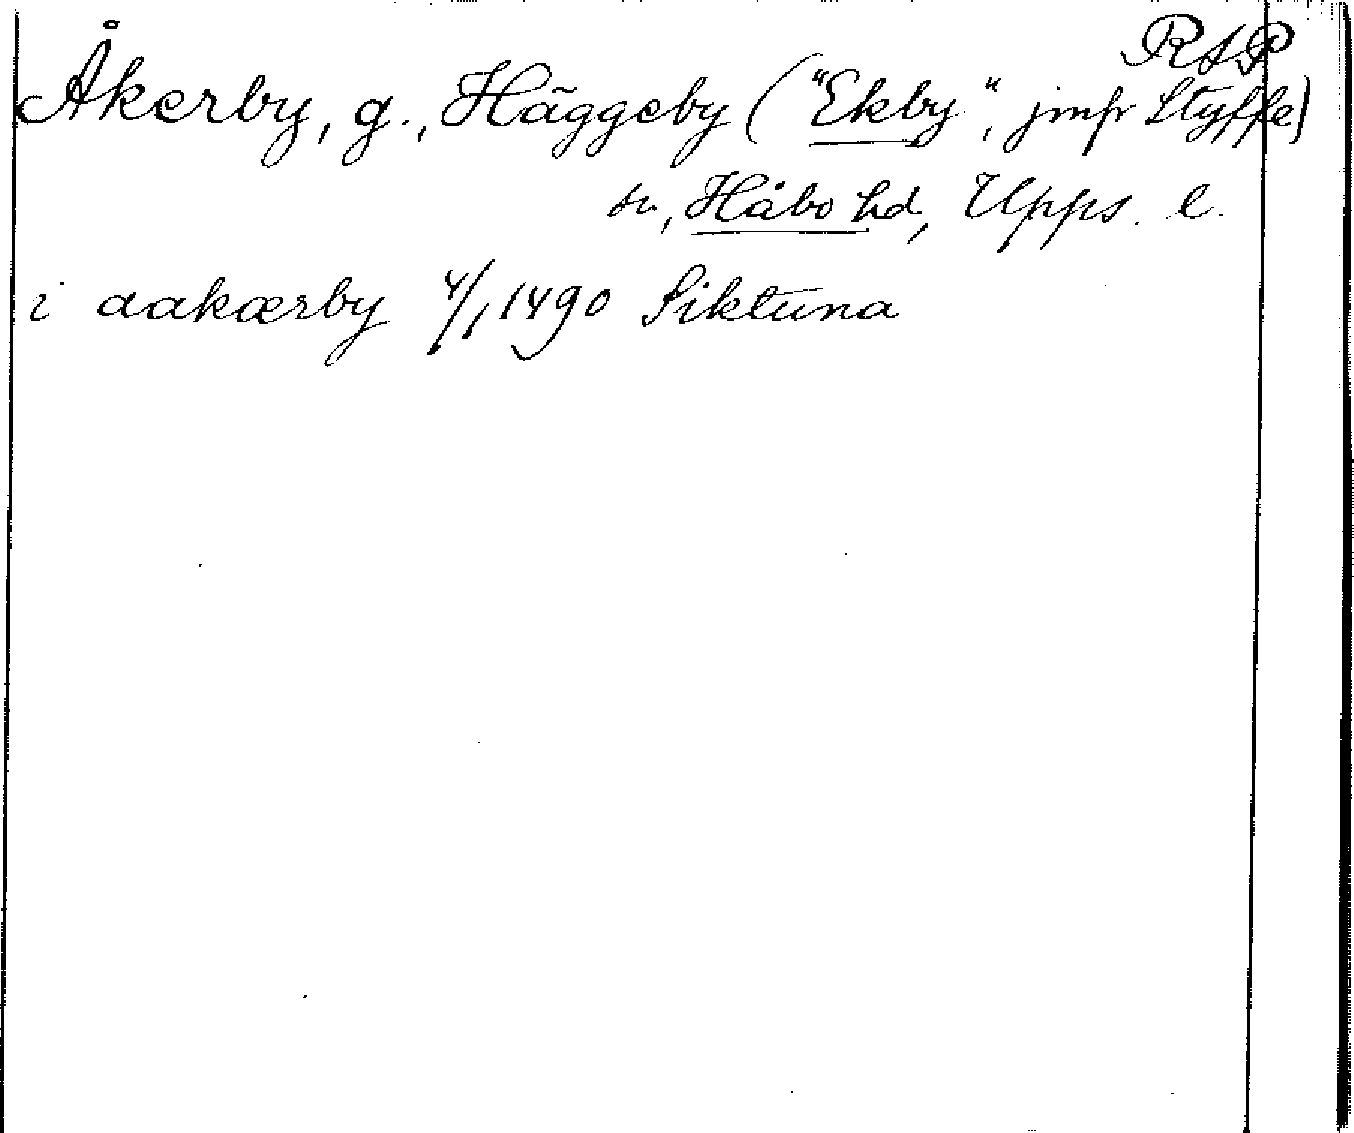 RAP
Åkerby, g., Häggeby ("Ekby", jmfr Styffe)
sn, Håbo hd, Upps. l.
i aakærby 4/1 1490 Siktuna